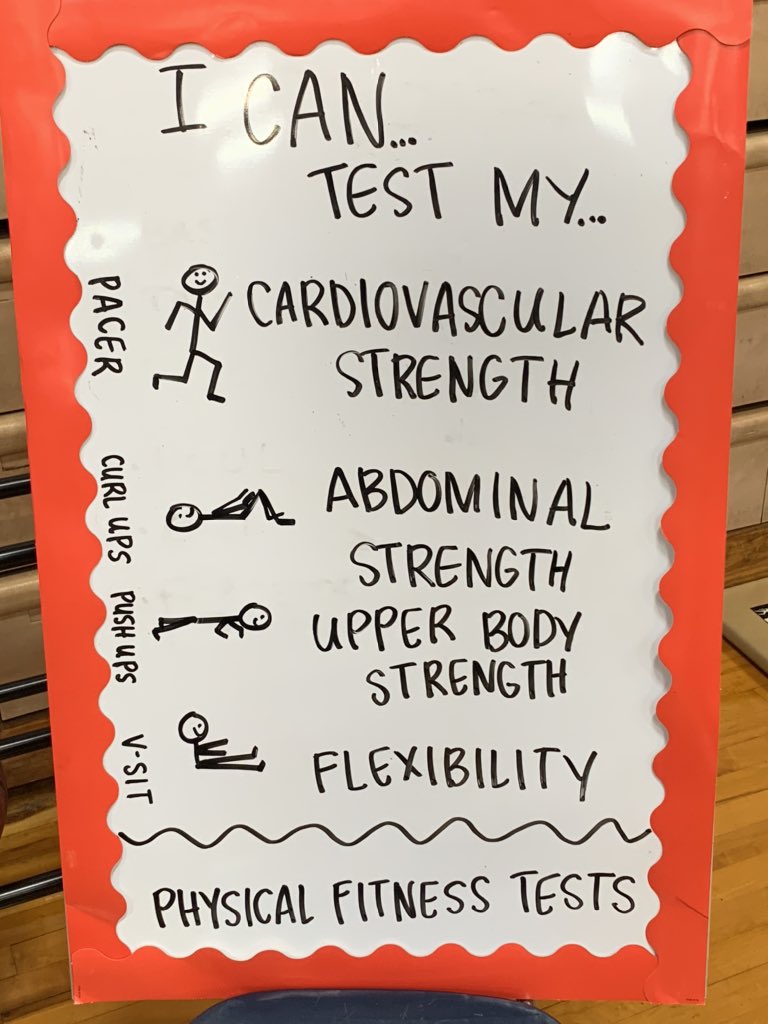 I CAN...
TEST MY...
PACER
CARDIOVASCULAR
STRENGTH
CURL UPS
ABDOMINAL
STRENGTH
PUSH UPS
UPPER BODY
STRENGTH
V-SIT
FLEXIBILITY
PHYSICAL FITNESS TESTS